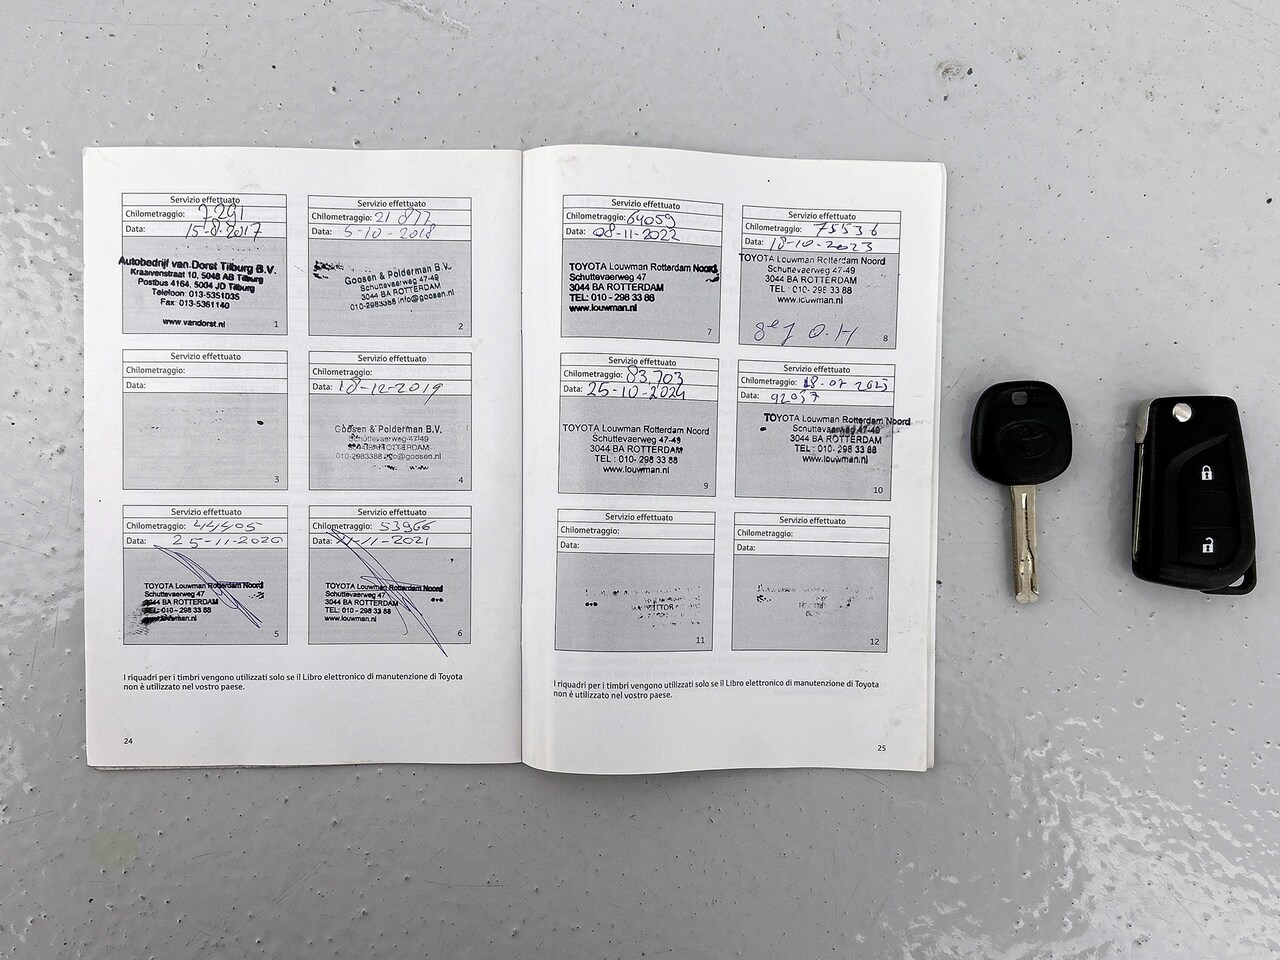 Servizio effettuato
Chilometraggio: 7291
Data: 15-8-2017
Autobedrijf van Dorst Tilburg B.V.
Kraaivenstraat 10, 5048 AB Tilburg
Postbus 4164, 5004 JD Tilburg
Telefoon: 013-5351035
Fax: 013-5361140
www.vandorst.nl
1
Servizio effettuato
Chilometraggio: 21 877
Data: 5-10-2018
Goosen & Polderman B.V.
Schuttevaerweg 47-49
3044 BA ROTTERDAM
010-2983388 info@goosen.nl
2
Servizio effettuato
Chilometraggio:
Data:
3
Servizio effettuato
Chilometraggio:
Data: 18-12-2019
Goosen & Polderman B.V.
Schuttevaerweg 47/49
3044 BA ROTTERDAM
010-2983388 info@goosen.nl
4
Servizio effettuato
Chilometraggio: 44405
Data: 25-11-2020
TOYOTA Louwman Rotterdam Noord
Schuttevaerweg 47
3044 BA ROTTERDAM
TEL: 010 - 298 33 88
www.louwman.nl
5
Servizio effettuato
Chilometraggio: 53966
Data: -11-2021
TOYOTA Louwman Rotterdam Noord
Schuttevaerweg 47
3044 BA ROTTERDAM
TEL: 010 - 298 33 88
www.louwman.nl
6
I riquadri per i timbri vengono utilizzati solo se il Libro elettronico di manutenzione di Toyota
non è utilizzato nel vostro paese.
24
Servizio effettuato
Chilometraggio: 64059
Data: 08-11-2022
TOYOTA Louwman Rotterdam Noord
Schuttevaerweg 47
3044 BA ROTTERDAM
TEL: 010 - 298 33 88
www.louwman.nl
7
Servizio effettuato
Chilometraggio: 75536
Data: 18-10-2023
TOYOTA Louwman Rotterdam Noord
Schuttevaerweg 47-49
3044 BA ROTTERDAM
TEL: 010- 298 33 88
www.louwman.nl
O.H
8
Servizio effettuato
Chilometraggio: 83.703
Data: 25-10-2024
TOYOTA Louwman Rotterdam Noord
Schuttevaerweg 47-49
3044 BA ROTTERDAM
TEL: 010- 298 33 88
www.louwman.nl
9
Servizio effettuato
Chilometraggio: 18-07 2025
Data: 92057
TOYOTA Louwman Rotterdam Noord
Schuttevaerweg 47-49
3044 BA ROTTERDAM
TEL: 010- 298 33 88
www.louwman.nl
10
Servizio effettuato
Chilometraggio:
Data:
11
Servizio effettuato
Chilometraggio:
Data:
12
I riquadri per i timbri vengono utilizzati solo se il Libro elettronico di manutenzione di Toyota
non è utilizzato nel vostro paese.
25